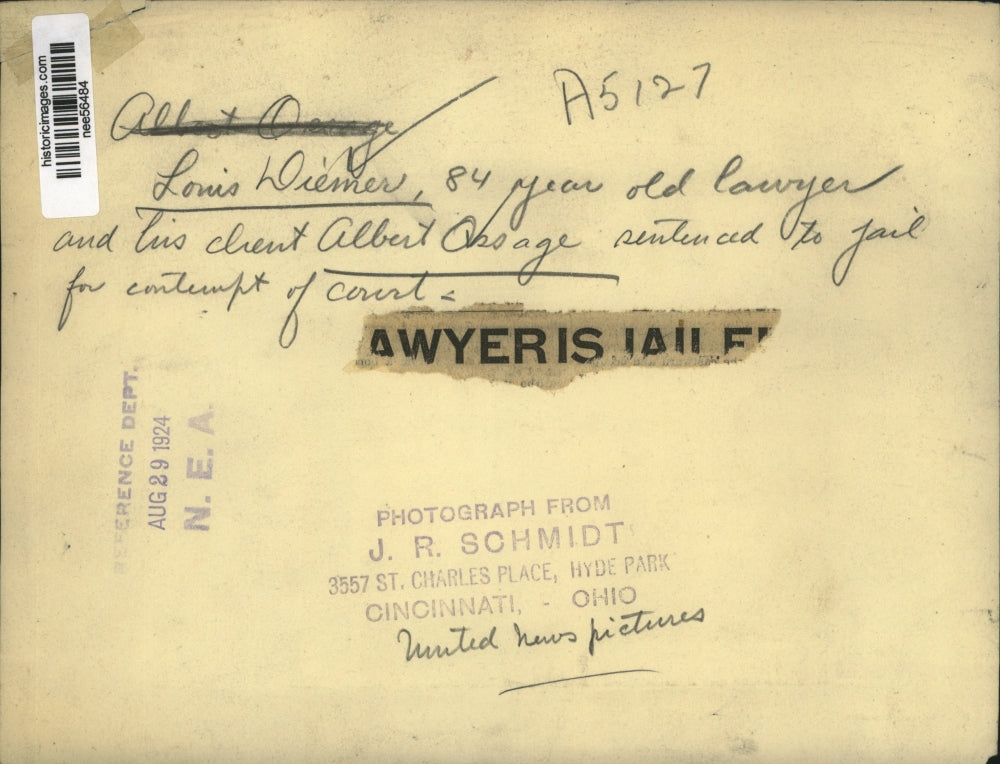 historicimages.com
nee56484
A5127
Albert Ossage
Louis Diemer, 84 year old lawyer
and his client Albert Ossage sentenced to jail
for contempt of court
AWYER IS JAILE
REFERENCE DEPT.
AUG 29 1924
N. E. A.
PHOTOGRAPH FROM
J. R. SCHMIDT
3557 ST. CHARLES PLACE, HYDE PARK
CINCINNATI, - OHIO
United News pictures